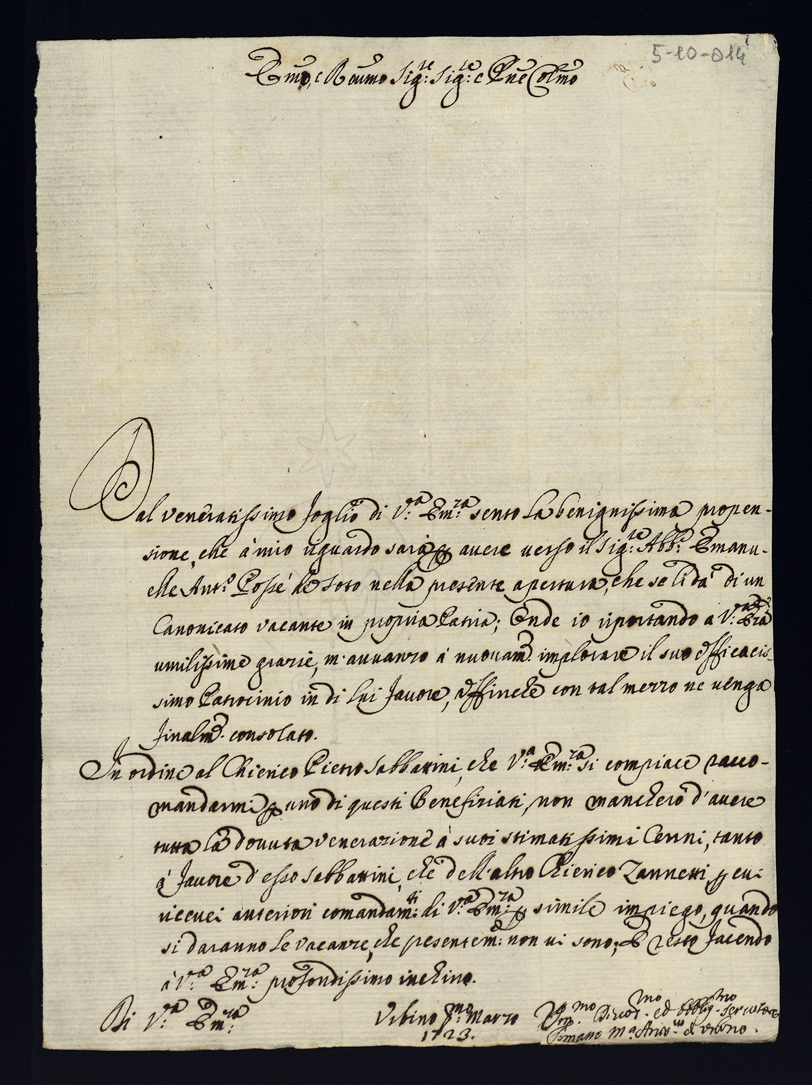 5-10-014
Emo, e Rmo Sig:re Sig:re e Pne Colmo
Dal veneratissimo foglio di V:ra Em:za sento la benignissima propen-
sione, che à mio riguardo sarà p avere verso il Sig:re Abb:e Emanu-
elle Ant:o Posse de Soto nella presente apertura, che se li dà di un
Canonicato vacante in propria Patria; Onde io riportando a V:ra Em:za
umilissime grazie, m'avvanzo à nuovam:e implorare il suo efficacis-
simo Patrocinio in di lui favore, affinche con tal mezzo ne venga
finalm:e consolato.
In ordine al Chierico Pietro Sabbatini, che V:ra Em:za si compiace racco-
mandarmi p uno di questi Benefiziati, non mancherò d'avere
tutta la dovuta venerazione à suoi stimatissimi Cenni, tanto
à favore d'esso Sabbatini, che dell'altro Chierico Zannetti, p cui
ricevei anteriori comandam:ti di V:ra Em:za p simile impiego, quando
si daranno le vacanze, che presentem:e non vi sono; E resto facendo
à V:ra Em:za profondissimo inchino.
Di V:ra Em:za
Urbino p:mo Marzo
1723.
Um:mo Divot:mo ed Obblig:mo Servitore
Tomaso M:a Arciv:o d'Urbino.